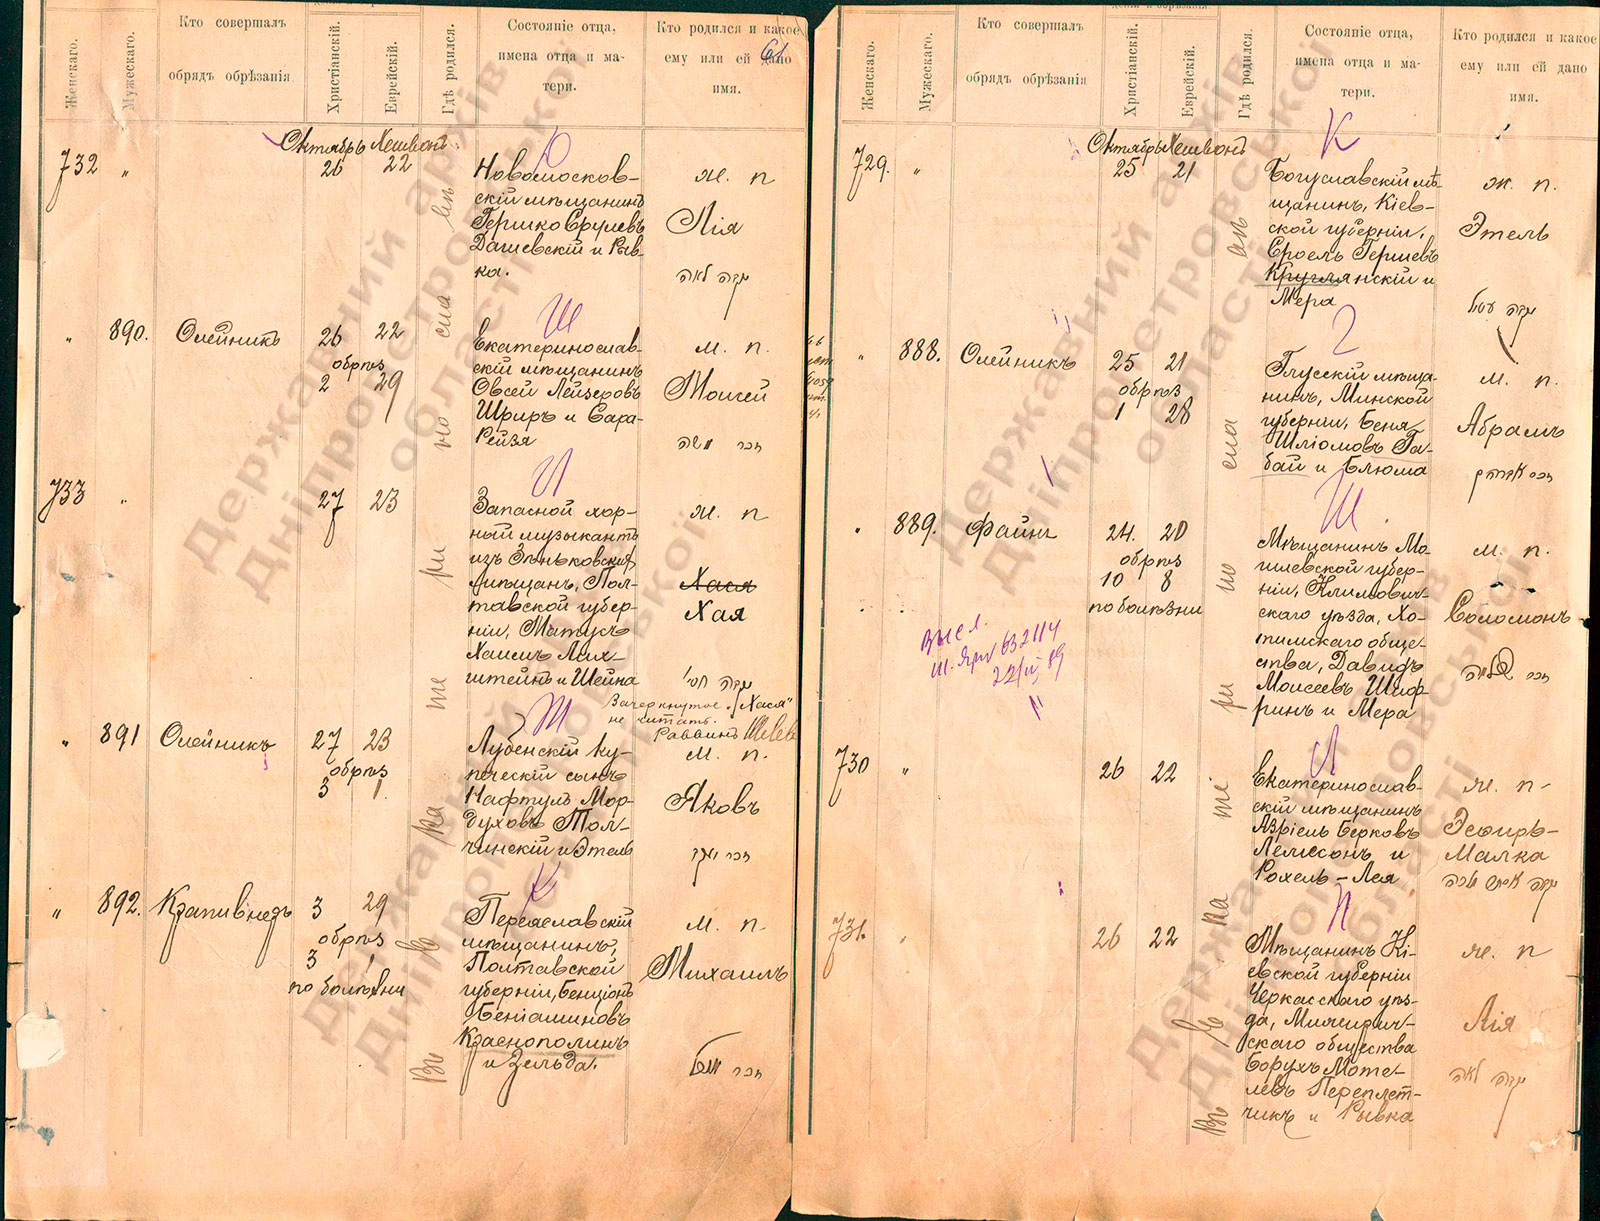 Женскаго.
Мужескаго.
Кто совершалъ
обрядъ обрѣзанія
Христіанскій.
Еврейскій.
Гдѣ родился.
Состояніе отца,
имена отца и ма-
тери.
Кто родился и какое
ему или ей дано
имя.
61
Октябрь Хешванъ
732 "
26 22
Новомосков-
скій мѣщанинъ
Гершко Срулевъ
Дашевскій и Рыв-
ка.
ж. п
Лія
נקבה לאה
" 890. Олейникъ
26 22
обрѣз
2 29
Екатеринослав-
скій мѣщанинъ
Овсей Лейзеровъ
Шриръ и Сара-
Рейзя
м. п.
Моисей
זכר משה
733 "
27 23
Запасной хор-
ный музыкантъ
изъ Зѣньковских
мѣщанъ, Пол-
тавской губер-
ніи, Матусъ
Хаимъ Лих-
штейнъ и Шейна
ж. п
Хася
Хая
נקבה חי'
Зачеркнутое "Хася"
не читать.
Раввинъ
" 891 Олейникъ
27 23
обрѣз
3 1.
Лубенскій ку-
печескій сынъ
Нафтулъ Мор-
духовъ Тол-
чинскій и Этель
м. п.
Яковъ
זכר יעקב
" 892. Крапивнедъ
3 29
обрѣз
3 1
по болѣзни
Переяславскій
мѣщанинъ,
Полтавской
губерніи, Бенціонъ
Беніаминовъ
Краснополинъ
и Зельда.
м. п.
Михаилъ
זכר
Въ Екатеринославѣ
Женскаго.
Мужескаго.
Кто совершалъ
обрядъ обрѣзанія
Христіанскій.
Еврейскій.
Гдѣ родился.
Состояніе отца,
имена отца и ма-
тери.
Кто родился и какое
ему или ей дано
имя.
Октябрь Хешванъ
729. "
25 21
Богуславскій мѣ-
щанинъ, Кіев-
ской губерніи,
Сроель Гершевъ
Круглянскій и
Мера
ж. п.
Этель
נקבה עטל
" 888. Олейникъ
25 21
обрѣз
1 28
Глусскій мѣща-
нинъ, Минской
губерніи, Беня
Шліомовъ Га-
бай и Блюма
м. п.
Абрамъ
זכר אברהם
" 889. Файнъ
24. 20
обрѣз
10 8
по болѣзни
Мѣщанинъ Мо-
гилевской губер-
ніи, Климович-
скаго уѣзда, Хо-
тимскаго обще-
ства, Давидъ
Моисеевъ Шиф-
ринъ и Мера
м. п.
Соломонъ
זכר שלמה
730 "
26 22
Екатеринослав-
скій мѣщанинъ
Азріель Берковъ
Лемсонъ и
Рохель-Лея
ж. п.
Эсѳирь-
Малка
נקבה אסתר מלכה
731. "
26 22
Мѣщанинъ Кі-
евской губерніи
Черкасскаго уѣз-
да, Мижирич-
скаго общества
Борухъ Моте-
левъ Переплет-
чикъ и Рывка
ж. п
Лія
נקבה לאה
Въ Екатеринославѣ
Державний архів
Дніпропетровської
області